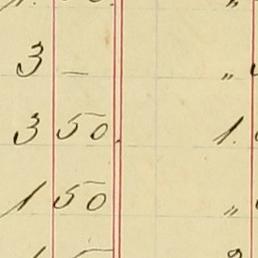 3 — „
3 50. 1.
1 50 „